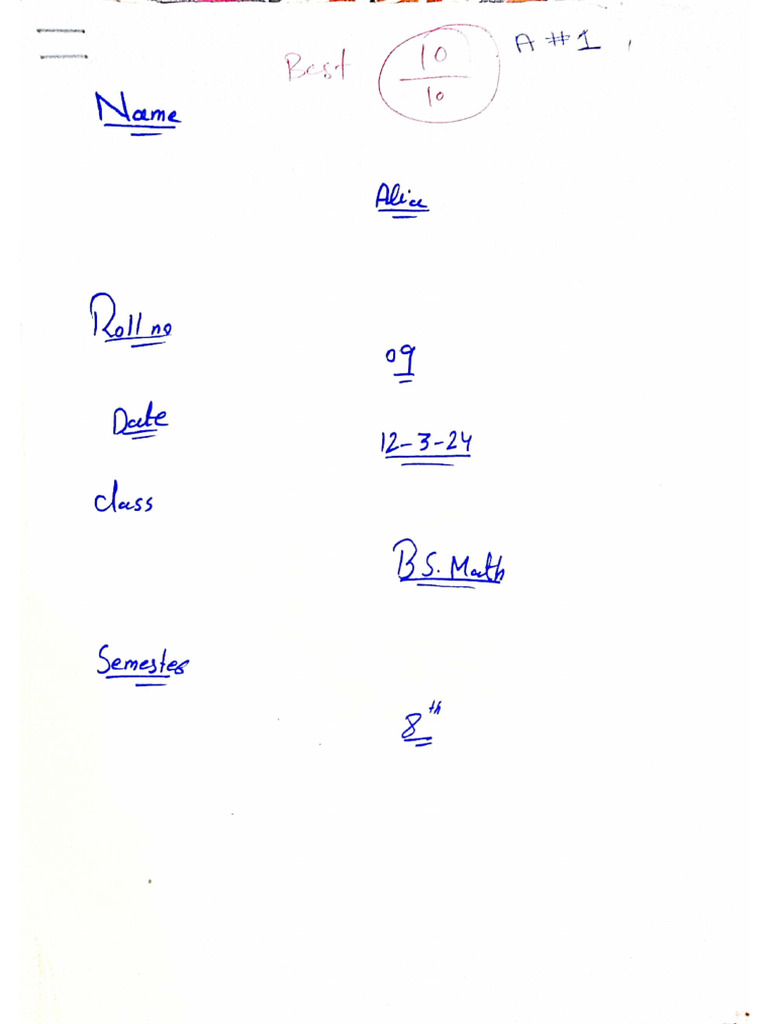 Best 10/10 A #1
Name
Alice
Roll no
09
Date
12-3-24
class
BS. Math
Semester
8th